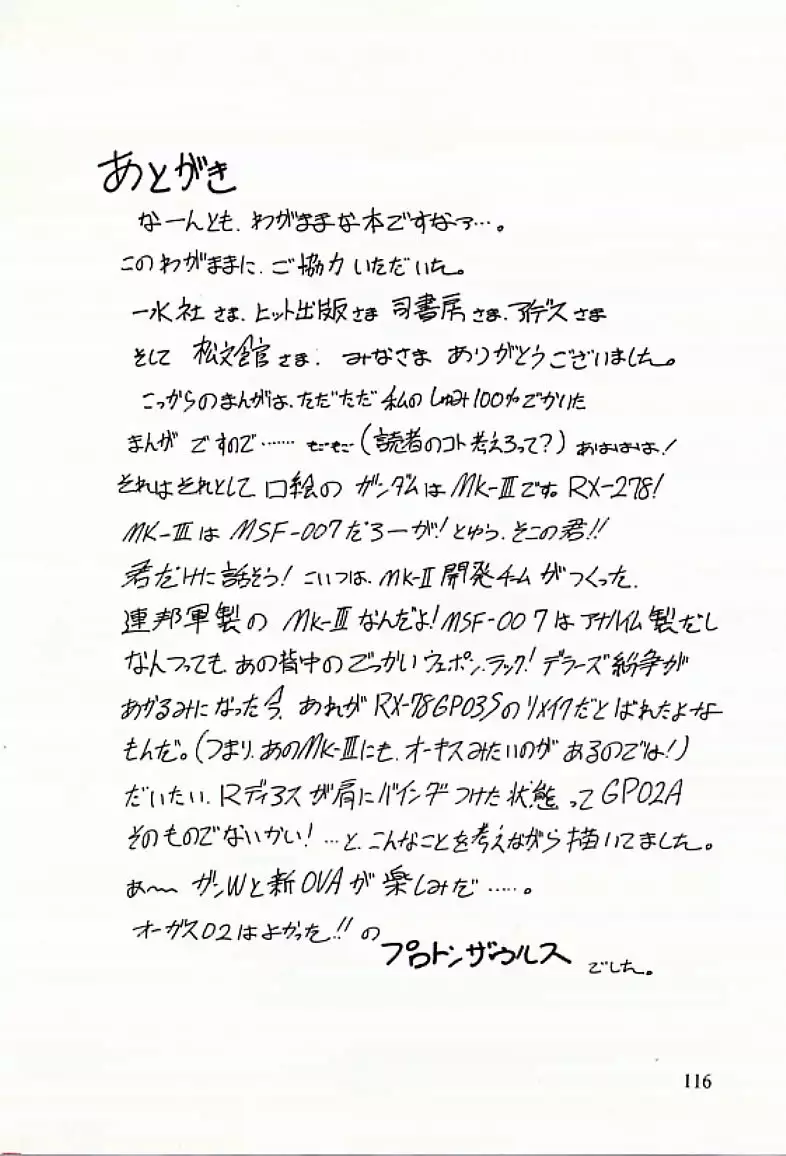 あとがき
なーんとも、わがままな本ですなァ…。
このわがままに、ご協力いただいた。
一水社さま、ヒット出版さま 司書房さま、アイデスさま
そして 松文館さま、みなさま ありがとうございました。
こっからのまんがは、ただただ私のしゅみ100%でかいた
まんが ですので…… もごもご(読者のコト考えろって?) あははは!
それはそれとして 口絵の ガンダムはMK-Ⅲです。RX-278!
MK-Ⅲは MSF-007だろーが!とゆう、そこの君!!
君だけに話そう! こいつは、MK-Ⅱ開発チームがつくった、
連邦軍製の MK-Ⅲなんだよ! MSF-007はアナハイム製だし
なんつっても、あの背中のごっかいウェポンラック! デラーズ紛争が
あかるみになった今、あれがRX-78GP03Sのリメイクだとばれたよな
もんだ。(つまり、あのMK-Ⅲにも、オーキスみたいのがあるのでは!)
だいたい、Rディアスが肩にバインダつけた状態ってGP02A
そのものでないかい! …と、こんなことを考えながら描いてました。
あ〜〜 ガンWと新OVAが楽しみだ……。
オーガス02はよかった!! の
プロトンザウルス でした。
116